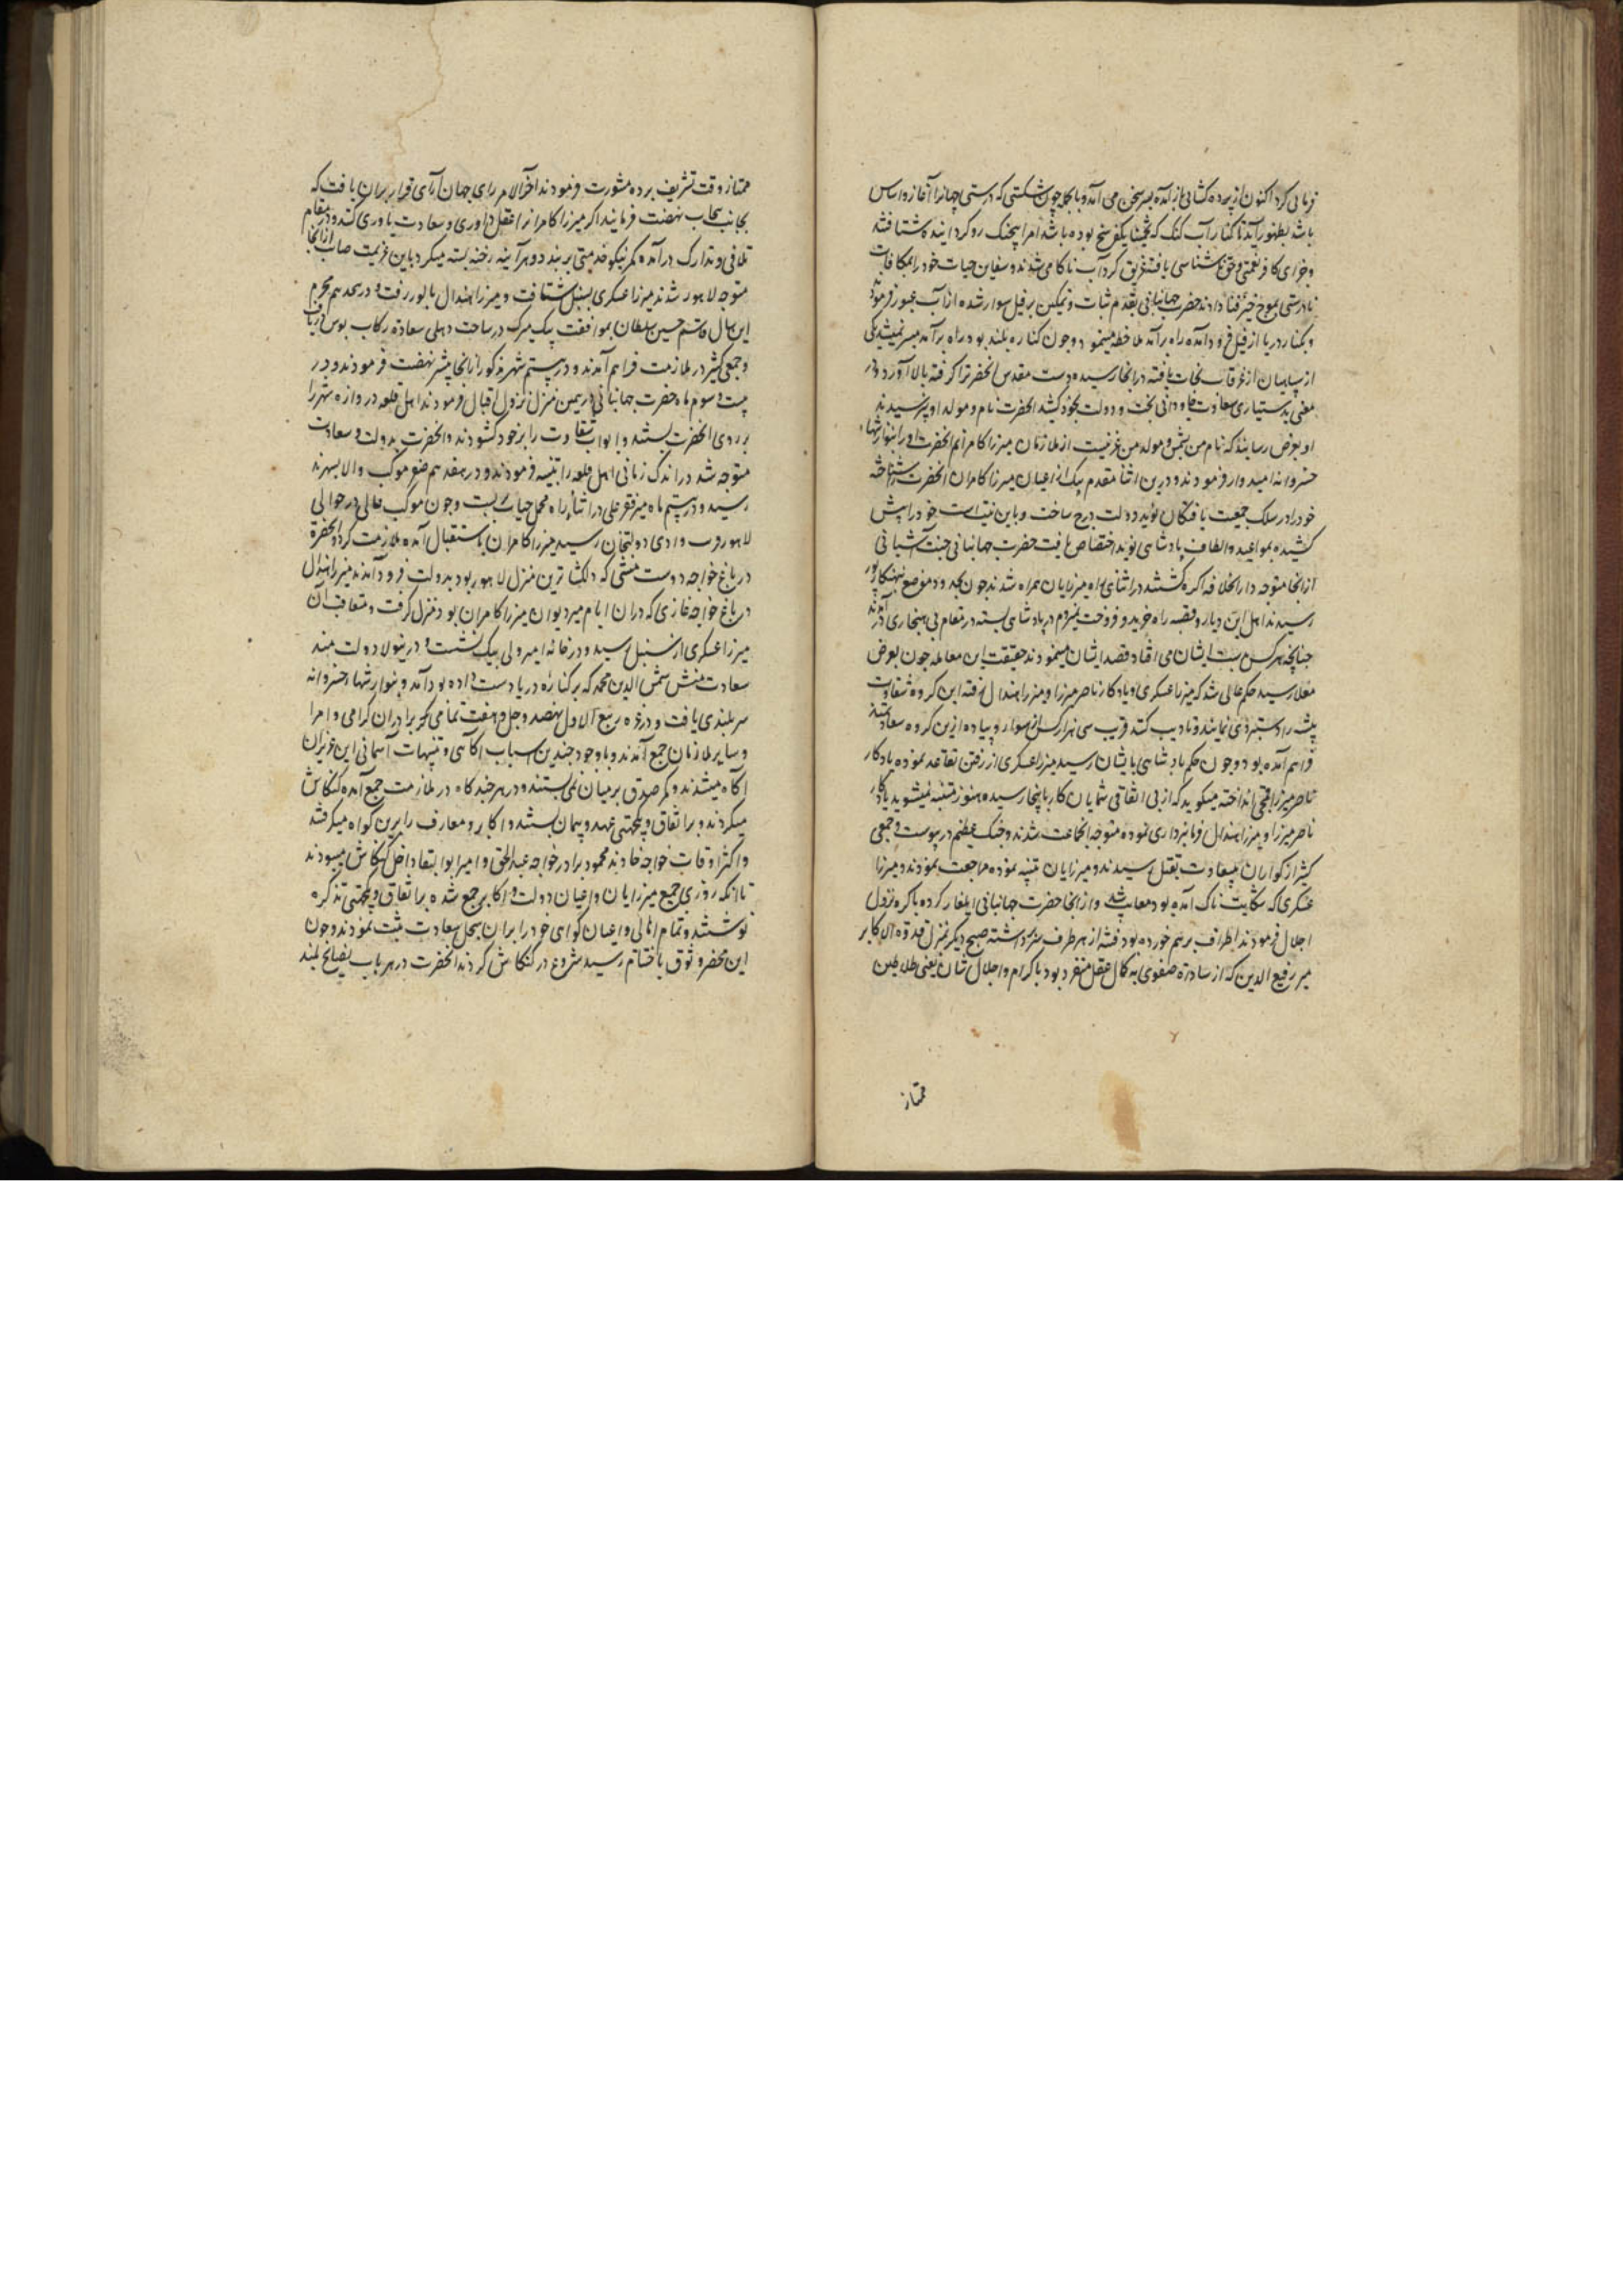 باشد بظهور آید تا کنار آب گنگ که تخمینا یکفرسخ بوده باشد امرا بیجنگ روگردانیده شتافتند
و جزای کافر نعمتی و حق ناشناسی یافته غریق گرداب ناکامی شدند و سفاین حیات خود را بمکافات
نادرستی بموج خیز فنا دادند حضرت جهانبانی بقدم ثبات و تمکین بر فیل سوار شده از آب عبور فرمودند
و بکنار دریا از فیل فرود آمده راه برآمد ملاحظه مینمود و چون کناره بلند بود راه برآمد میسر نمیشد یکی
از سپاهیان از غرقاب نجات یافته در انجا رسیده دست مقدس آنحضرت را گرفته بالا آورد و در
معنی بدستیاری سعادت جاودانی بخت و دولت بخود کشید آنحضرت نام و مولد او پرسیدند
او بعرض رسانید که نام من شمس و مولد من غزنیست از ملازمان میرزا کامرانم آنحضرت او را بنوازشهاء
خسروانه امیدوار فرمودند و درین اثنا مقدم بیک از اعیان میرزا کامران آنحضرت را شناخته
خود را در سلک جمعیت یافتگان نوید دولت درج ساخت و باین نیت اسب خود را پیش
کشیده بمواعید و الطاف پادشاهی نوید اختصاص یافت حضرت جهانبانی جنت آشیانی
از انجا متوجه دارالخلافه اگره گشتند در اثنای راه میرزایان همراه شدند چون بحدود موضع بهنگاپور
رسیدند اهل این دیار و قصبه راه خرید و فروخت بمردم پادشاهی بسته در مقام بی هنجاری آمدند
چنانچه هرکس بدست ایشان می افتاد قصد ایشان مینمودند حقیقت این معامله چون بعرض
معلا رسید حکم عالی شد که میرزا عسکری و یادگار ناصر میرزا و میرزا هندال رفته این گروه شقاوت
پیشه را دستبردی نمایند و تادیب کنند قریب سی هزار کس از سوار و پیاده ازین گروه
فراهم آمده بود و چون حکم پادشاهی بایشان رسید میرزا عسکری از رفتن تقاعد نموده یادگار
ناصر میرزا قمچی انداخته میگوید که از بی اتفاقی شمایان کار باینجا رسیده هنوز متنبه نمیشوید یادگار
ناصر میرزا و میرزا هندال فرمانبرداری نموده متوجه انجماعت شدند و جنگ عظیم در پیوست و جمعی
کثیر از گواران بیسعادت بقتل رسیدند و میرزایان تنبیه نموده مراجعت نمودند و میرزا
عسکری که شکایت ناک آمده بود معاتب شد و از انجا حضرت جهانبانی ایلغار کرده باگره نزول
اجلال فرمودند اطراف برهم خورده بود فتنه از هر طرف سر برداشته صبح دیگر بمنزل قدوة الاکابر
میر رفیع الدین که از سادات صفوی به کمال عقل منفرد بود باکرام و اجلال شان یعنی سلاطین
ممتاز
ممتاز وقت تشریف برده مشورت فرمودند اخر الامر رای جهان آرای قرار بران یافت که
بجانب پنجاب نهضت فرمایند اگر میرزا کامران را عقل داوری و سعادت یاوری کند و در مقام
تلافی و تدارک درآمده کمر نیکو خدمتی بربندد هر آینه رخنه بسته میگردد باین عزیمت صائب از انجا
متوجه لاهور شدند میرزا عسکری بسنبل شتافت و میرزا هندال بالور رفت و در هجدهم محرم
این سال قاسم حسین سلطان بموافقت بیک میرک در ساحت دهلی سعادة رکاب بوس دریافت
و جمعی کثیر در ملازمت فراهم آمدند و در بیستم شهر مذکور از انجا پیشتر نهضت فرمودند و در
بیست و سوم ماه حضرت جهانبانی در همین منزل نزول اقبال فرمودند اهل قلعه دروازه شهر را
بر روی آنحضرت بستند و ابواب شقاوت را بر خود گشودند و آنحضرت بدولت و سعادت
متوجه شد در اندک زمانی اهل قلعه را تنبیه فرمودند و در هفدهم صفر موکب والا بسهرند
رسید و در بیستم ماه میر فقر علی در اثناء راه محمل حیات بربست و چون موکب عالی در حوالی
لاهور قریب وادی دولتخان رسید میرزا کامران باستقبال آمده ملازمت کرد و آنحضرة
در باغ خواجه دوست منشی که دلکشا ترین منزل لاهور بود بدولت فرود آمدند میرزا هندال
در باغ خواجه غازی که دران ایام میر دیوان میرزا کامران بود منزل گرفت و متعاقب آن
میرزا عسکری از سنبل رسید و در خانه امیر ولی بیک نشست و درینولا دولت مند
سعادت منش شمس الدین محمد که بر کناره دریا دست داده بود آمد و بنوازشهاء خسروانه
سربلندی یافت و در غره ربیع الاول نهصد و چهل و هفت تمامی برادران گرامی و امرا
و سایر ملازمان جمع آمدند و با وجود چندین اسباب آگاهی و تنبیهات آسمانی این عزیزان
آگاه نمیشدند و کمر صدق بر میان نمی بستند و در هر چند گاه در ملازمت جمع آمده کنکاش
میکردند و بر اتفاق و یکجهتی عهد و پیمان بستند و اکابر و معارف را برین گواه میگرفتند
و اکثر اوقات خواجه خاوند محمود برادر خواجه عبدالحق و امیر ابوالبقا داخل کنکاش میبودند
تا انکه روزی جمیع میرزایان و اعیان دولت و اکابر جمع شده بر اتفاق و یکجهتی تذکره
نوشتند و تمام اهالی و اعیان گواهی خود را بران سجل سعادت ثبت نمودند و چون
این محضر وثوق باختتام رسید شروع در کنکاش کردند آنحضرت در هر باب نصایح بلند